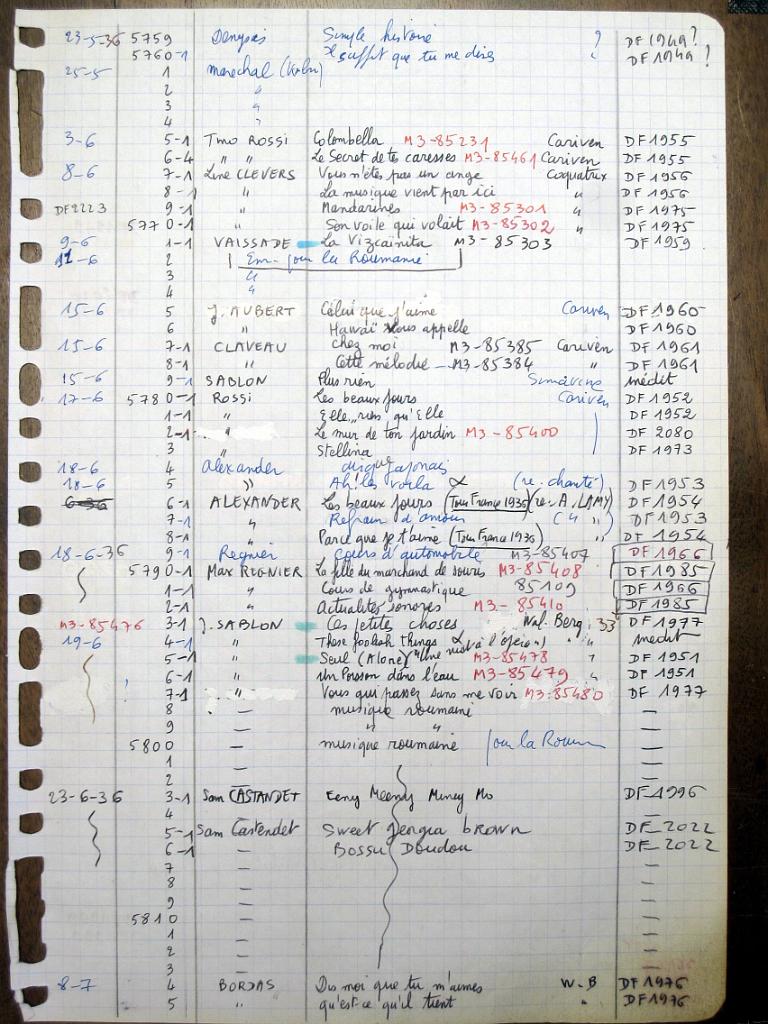 23-5-36 5759 Simple histoire ? DF 1949?
5760-1 Il suffit que tu me dises DF 1949?
25-5 1 Marechal
2 "
3 "
4 "
3-6 5-1 Tino ROSSI Colombella M3-85231 Cariven DF 1955
6-4 " " Le Secret de tes caresses M3-85461 Cariven DF 1955
8-6 7-1 Line CLEVERS Vous n'êtes pas un ange Coquatrix DF 1956
8-1 " La musique vient par ici " DF 1956
DF2223 9-1 " Mandarines M3-85301 " DF 1975
5770-1 " Son voile qui volait M3-85302 " DF 1975
9-6 1-1 VAISSADE La Vizcainita M3-85303 DF 1959
11-6 2 Enr. pour la Roumanie
3 "
4 "
15-6 5 J. AUBERT Celui que j'aime Cariven DF 1960
6 " Hawaï vous appelle DF 1960
15-6 7-1 CLAVEAU chez moi M3-85385 Cariven DF 1961
8-1 " Cette mélodie - M3-85384 " DF 1961
15-6 9-1 SABLON Plus rien inédit
17-6 5780-1 ROSSI Les beaux jours Cariven DF 1952
1-1 " Elle.. rien qu'Elle DF 1952
2-1 " Le mur de ton jardin M3-85400 DF 2080
3 " Stellina DF 1973
18-6 4 Alexander disque japonais
18-6 5 " Ah! les voilà (re. chanté) DF 1953
6-36 6-1 ALEXANDER Les beaux jours (Tour France 1936) (re. A. LAMY) DF 1954
7-1 " Refrain d'amour ( " " ) DF 1953
8-1 " Parce que je t'aime (Tour France 1936) DF 1954
18-6-36 9-1 Regnier Cours d'automobile M3-85407 DF 1966
5790-1 Max REGNIER La fille du marchand de souris M3-85408 DF 1985
1-1 " Cours de gymnastique 85109 DF 1966
2-1 " Actualités sonores M3-85410 DF 1985
M3-85476 3-1 J. SABLON Ces petites choses Wal. Berg. 33 DF 1977
19-6 4-1 " These foolish things " inedit
5-1 " Seul (Alone) ("Une nuit à l'opéra") M3-85478 " DF 1951
6-1 " Un Poisson dans l'eau M3-85479 " DF 1951
7-1 " Vous qui passez sans me voir M3-85480 DF 1977
8 — musique roumaine —
9 — " " —
5800 — musique roumaine pour la Roum —
1 — —
2 — —
23-6-36 3-1 Sam CASTANDET Eeny Meeny Miney Mo DF-1996
4 —
5-1 Sam Castendet Sweet Georgia brown DF-2022
6-1 — Bossu Doudou DF-2022
7 — —
8 — —
9 — —
5810 — —
1 — —
2 — —
3 — —
8-7 4 BORDAS Dis moi que tu m'aimes W-B DF 1976
5 " qu'est-ce qu'il tient " DF 1976